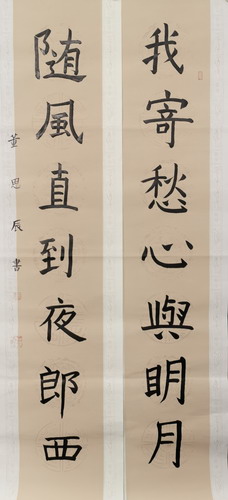 我寄愁心與明月
随風直到夜郎西
董思辰書